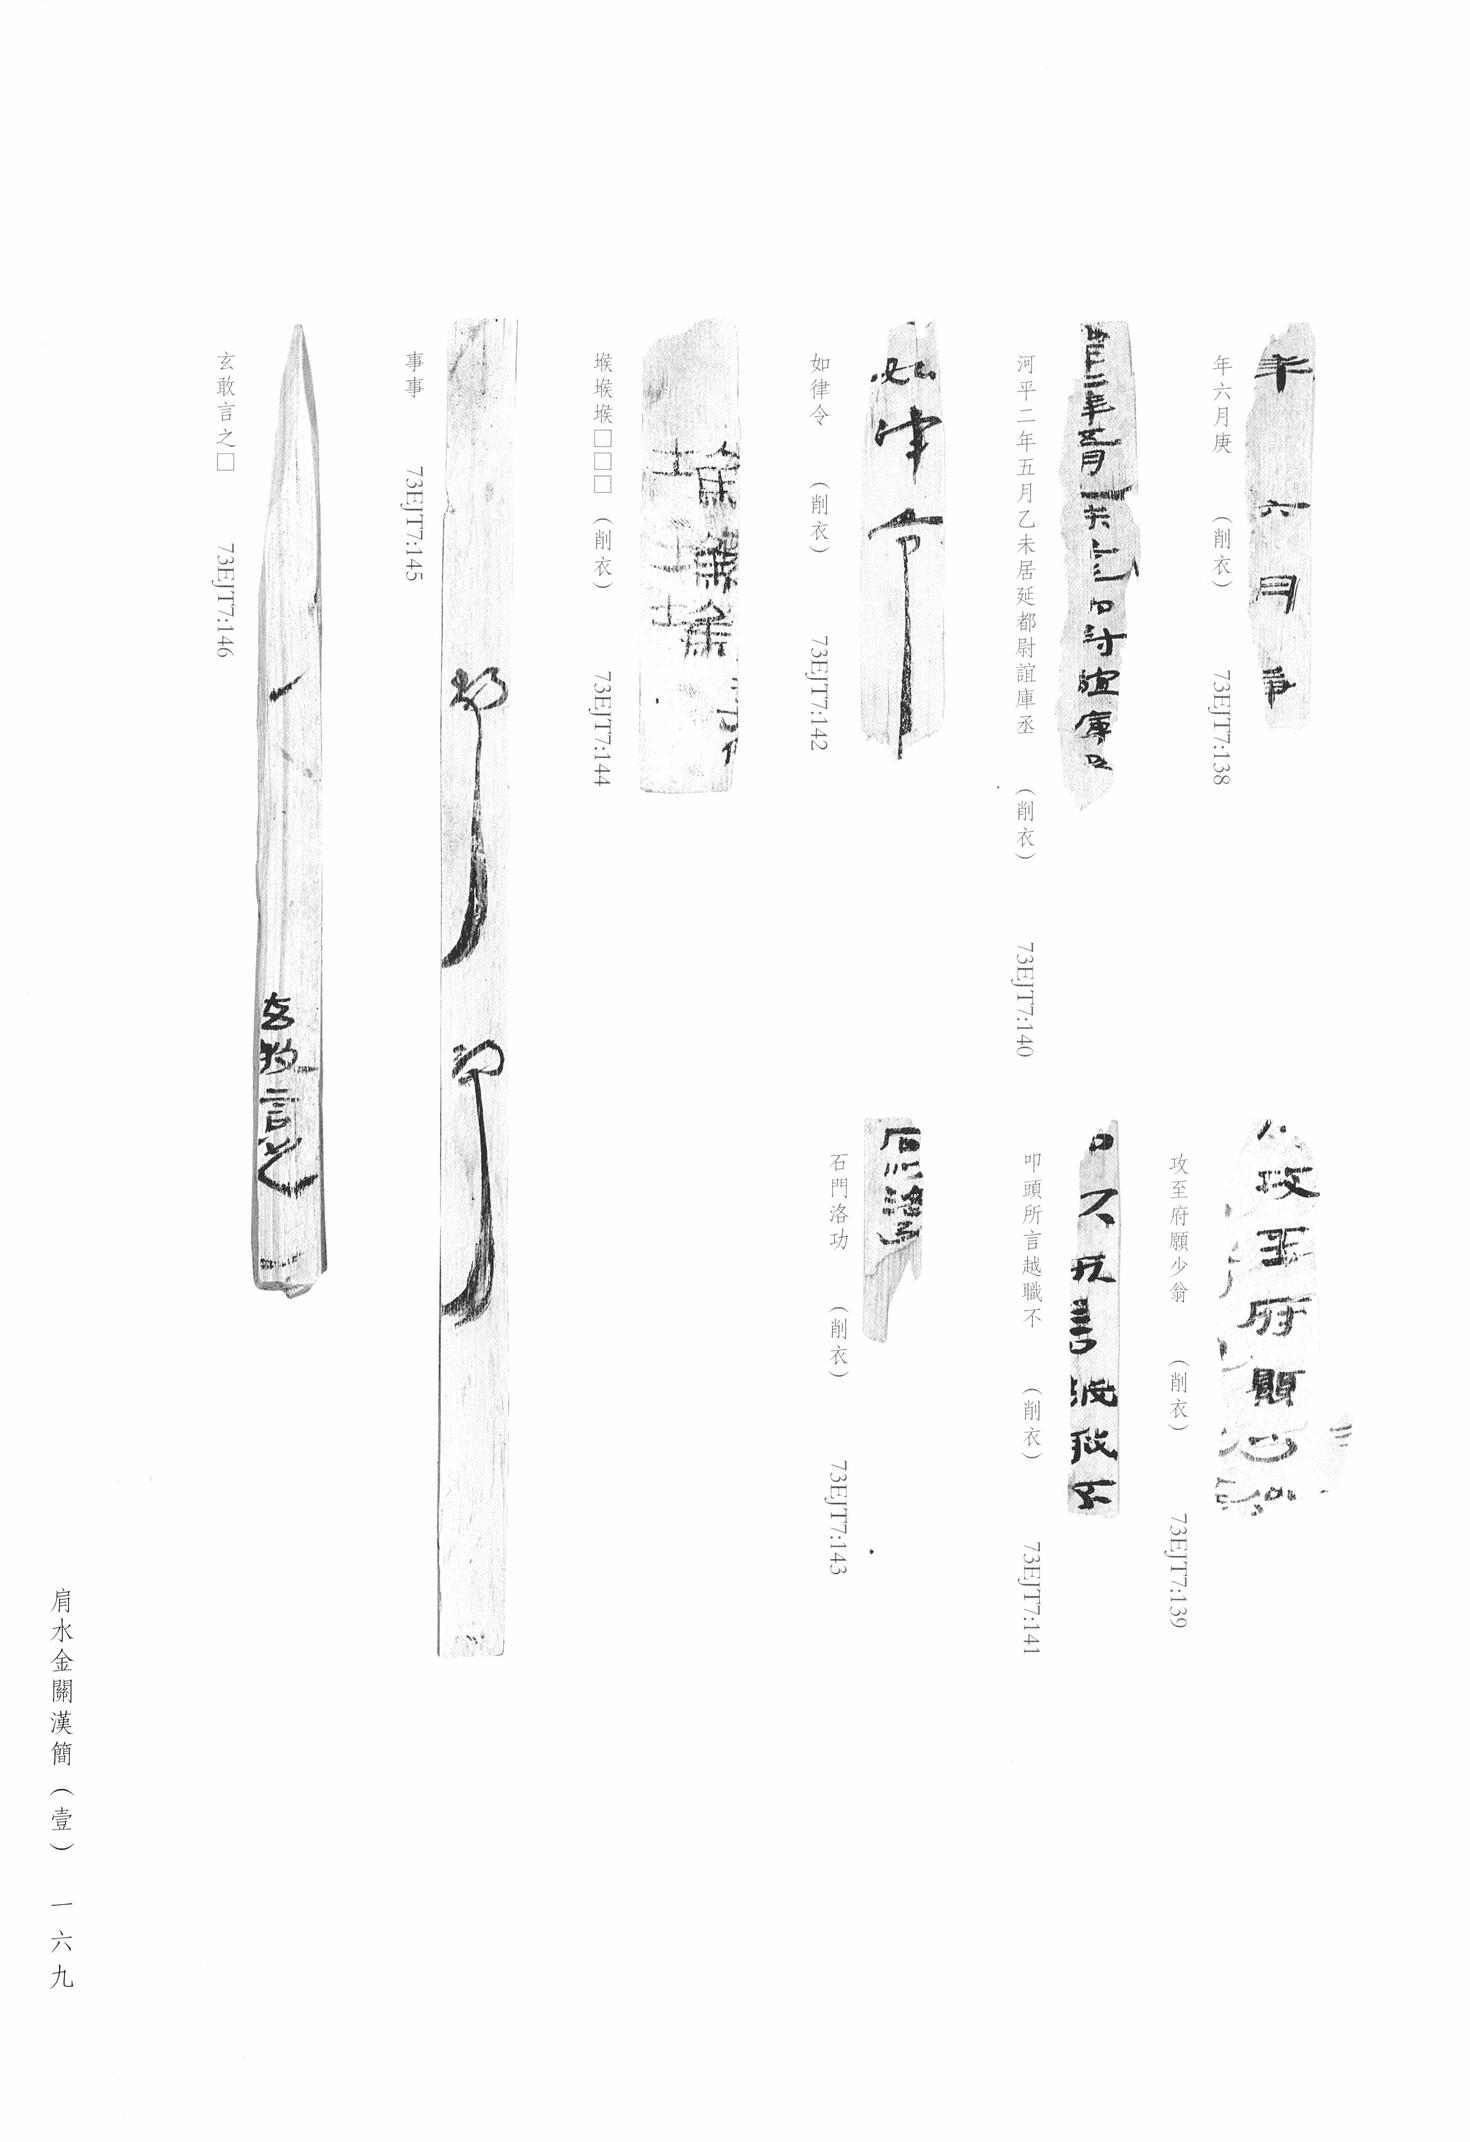 年六月庚 （削衣） 73EJT7:138
攻至府願少翁 （削衣） 73EJT7:139
河平二年五月乙未居延都尉誼庫丞 （削衣） 73EJT7:140
叩頭所言越職不 （削衣） 73EJT7:141
如律令 （削衣） 73EJT7:142
石門洛功 （削衣） 73EJT7:143
堠堠堠□□□ （削衣） 73EJT7:144
事事 73EJT7:145
玄敢言之□ 73EJT7:146
肩水金關漢簡（壹） 一六九